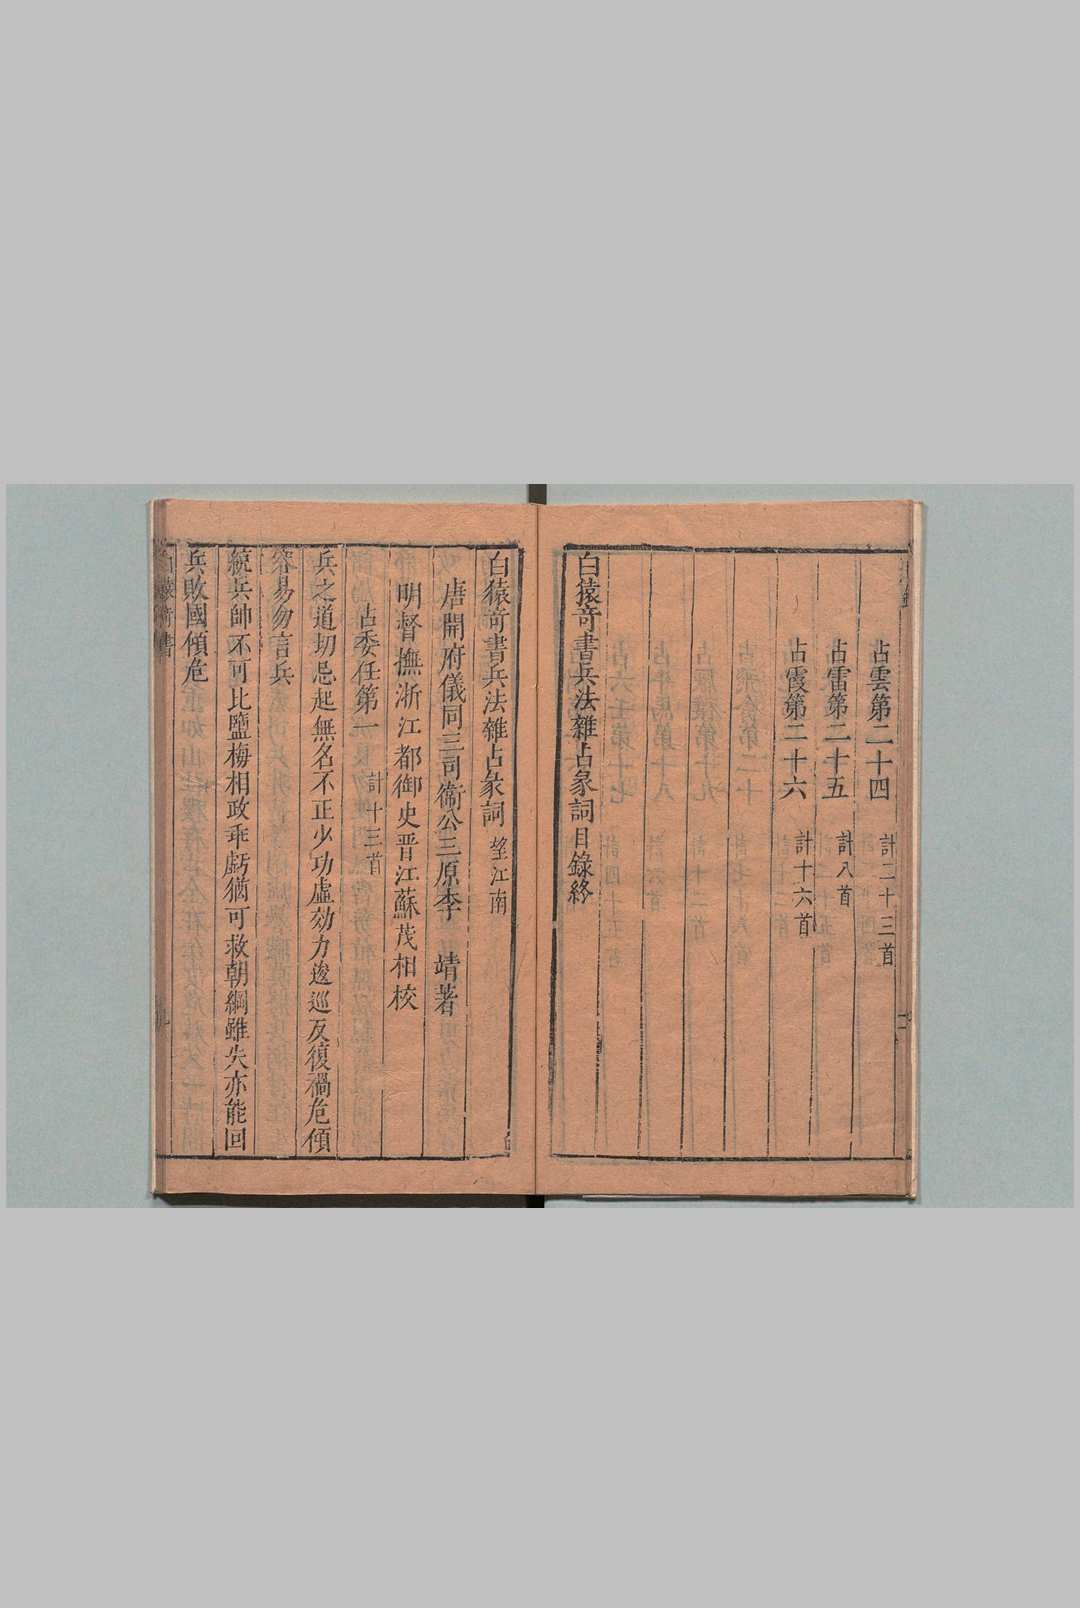 占雲第二十四 計二十三首
占雷第二十五 計八首
占霞第二十六 計十六首
白猿奇書兵法雜占彖詞目錄終
白猿奇書兵法雜占彖詞 望江南
唐開府儀同三司衞公三原李靖著
明督撫浙江都御史晋江蘇茂相校
占委任第一 計十三首
兵之道切忌起無名不正少功虛効力逡巡反復禍危傾
容易勿言兵
統兵帥不可比鹽梅相政乖虧猶可救朝綱雖失亦能回
兵敗國傾危